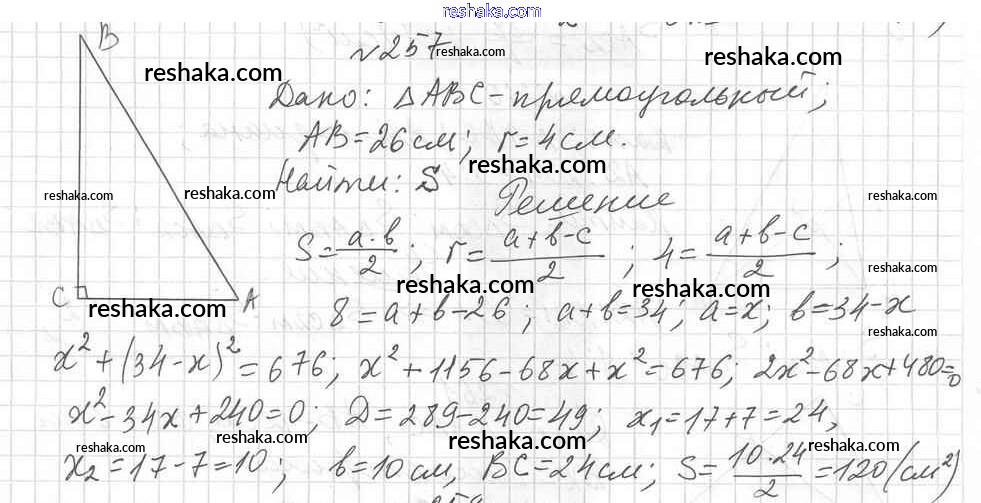 reshaka.com
№257
reshaka.com
reshaka.com
reshaka.com
Дано: △ABC - прямоугольный;
AB = 26 см; r = 4 см.
reshaka.com
Найти: S
reshaka.com
reshaka.com
reshaka.com
Решение
S = a·b/2; r = a+b-c/2; 4 = a+b-c/2;
reshaka.com
reshaka.com
reshaka.com
B
C
A
reshaka.com
8 = a+b-26; a+b=34; a=x; b=34-x
reshaka.com
x²+(34-x)²=676; x²+1156-68x+x²=676; 2x²-68x+480=0
x²-34x+240=0; D=289-240=49; x₁=17+7=24,
reshaka.com
reshaka.com
reshaka.com
reshaka.com
x₂=17-7=10; b=10 см, BC=24 см; S= 10·24/2 =120 (см²)